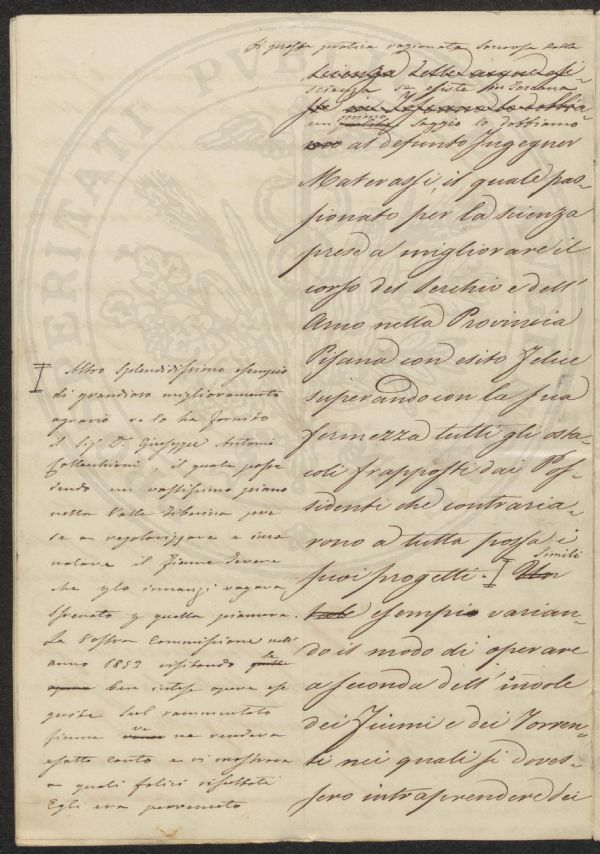 Di questa pratica ragionata soccorsa dalla
scienza delle acque esi-
scienza se esiste in Toscana
ste in Toscana lo dobbia
un primo saggio lo dobbiamo
mo al defunto Ingegner
Materassi, il quale pas-
sionato per la scienza
prese a migliorare il
corso del Serchio e dell'
Arno nella Provincia
Pisana con esito felice
superando con la sua
fermezza tutti gli osta-
coli frapposti dai Pos-
sidenti che contraria-
rono a tutta possa i
suoi progetti. Un
Simili
tale esempio varian-
do il modo di operare
a seconda dell'indole
dei Fiumi e dei Torren-
ti nei quali si doves-
sero intraprendere dei
Altro splendidissimo esempio
di grandioso miglioramento
agrario ce lo ha fornito
il Sig. D. Giuseppe Antonio
Collacchioni, il quale posse
dendo un vastissimo piano
nella Valle Tiberina pre
se a regolarizzare e ina
lveare il Fiume Tevere
che per lo innanzi vagava
sfrenato per quella pianura.
La Vostra Commissione nell'
anno 1852 visitando la
ben intesa opera ese
guita sul rammentato
fiume ve ne rendeva
esatto conto e vi mostrava
a quali felici risultati
Egli era pervenuto